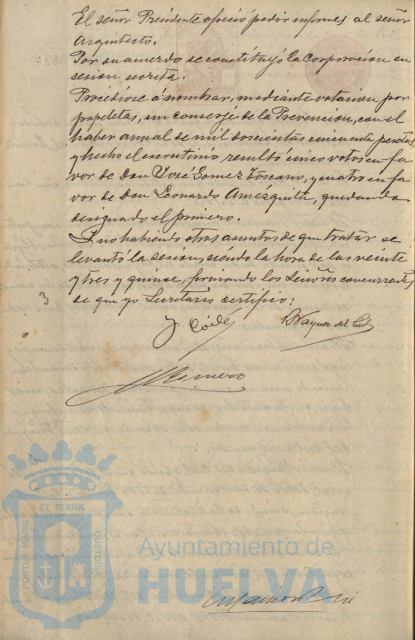 El señor Presidente ofreció pedir informes al señor
Arquitecto.
Por su acuerdo se constituyó la Corporación en
sesion secreta.
Procediose á nombrar, mediante votacion por
papeletas, un conserje de la Prevencion, con el
haber anual de mil doscientas cincuenta pesetas
y hecho el escrutinio resultó cinco votos en fa
vor de Don José Gomez Toscano, y cuatro en fa
vor de Don Leonardo Amézquita, quedando
designado el primero.
Y no habiendo otros asuntos de que tratar se
levantó la sesion, siendo la hora de las veinte
y tres y quince, firmando los Señores concurrentes
de que yo Secretario certifico:
3
EL TERRAE
PORTUS MARIS
CUSTODIA
Ayuntamiento de
HUELVA